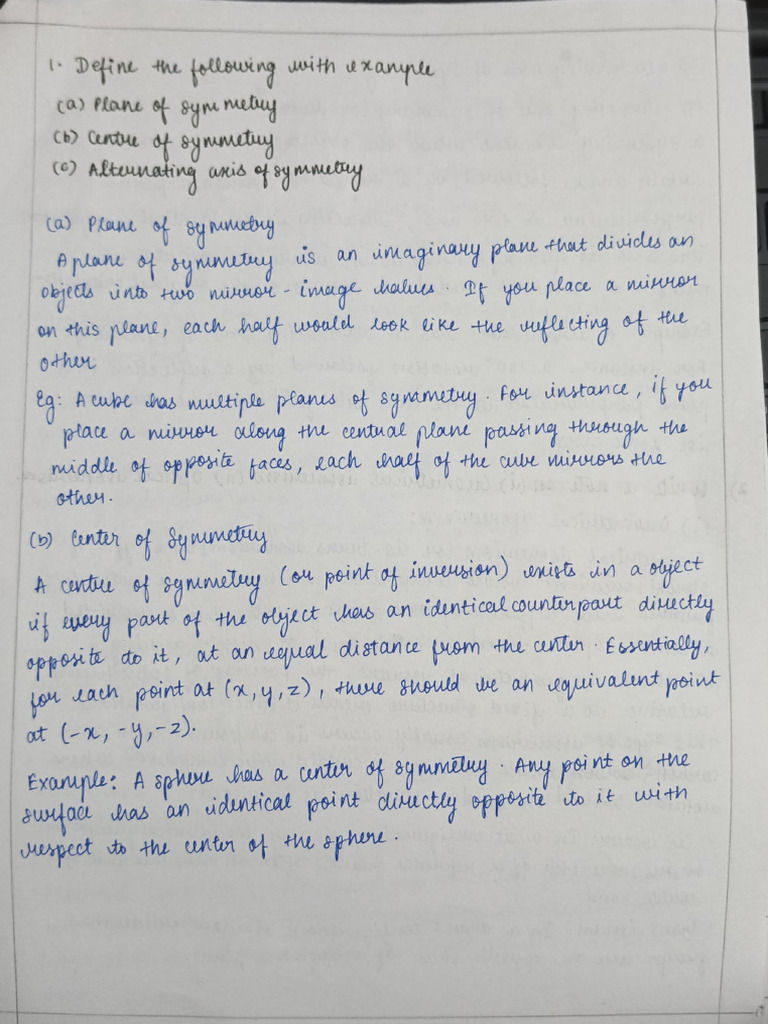 1. Define the following with example
(a) Plane of symmetry
(b) Centre of symmetry
(c) Alternating axis of symmetry
(a) Plane of symmetry
A plane of symmetry is an imaginary plane that divides an
objects into two mirror-image halves. If you place a mirror
on this plane, each half would look like the reflecting of the
other
Eg: A cube has multiple planes of symmetry. For instance, if you
place a mirror along the central plane passing through the
middle of opposite faces, each half of the cube mirrors the
other.
(b) Center of Symmetry
A centre of symmetry (or point of inversion) exists in a object
if every part of the object has an identical counterpart directly
opposite to it, at an equal distance from the center. Essentially,
for each point at (x, y, z), there should be an equivalent point
at (-x, -y, -z).
Example: A sphere has a center of symmetry. Any point on the
surface has an identical point directly opposite to it with
respect to the center of the sphere.